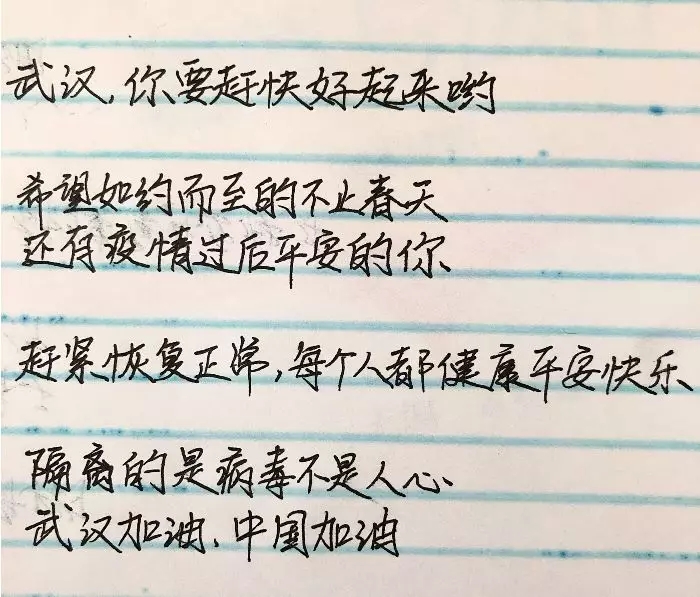 武汉,你要赶快好起来哟
希望如约而至的不止春天
还有疫情过后平安的你、
赶紧恢复正常,每个人都健康平安快乐、
隔离的是病毒不是人心、
武汉加油、中国加油